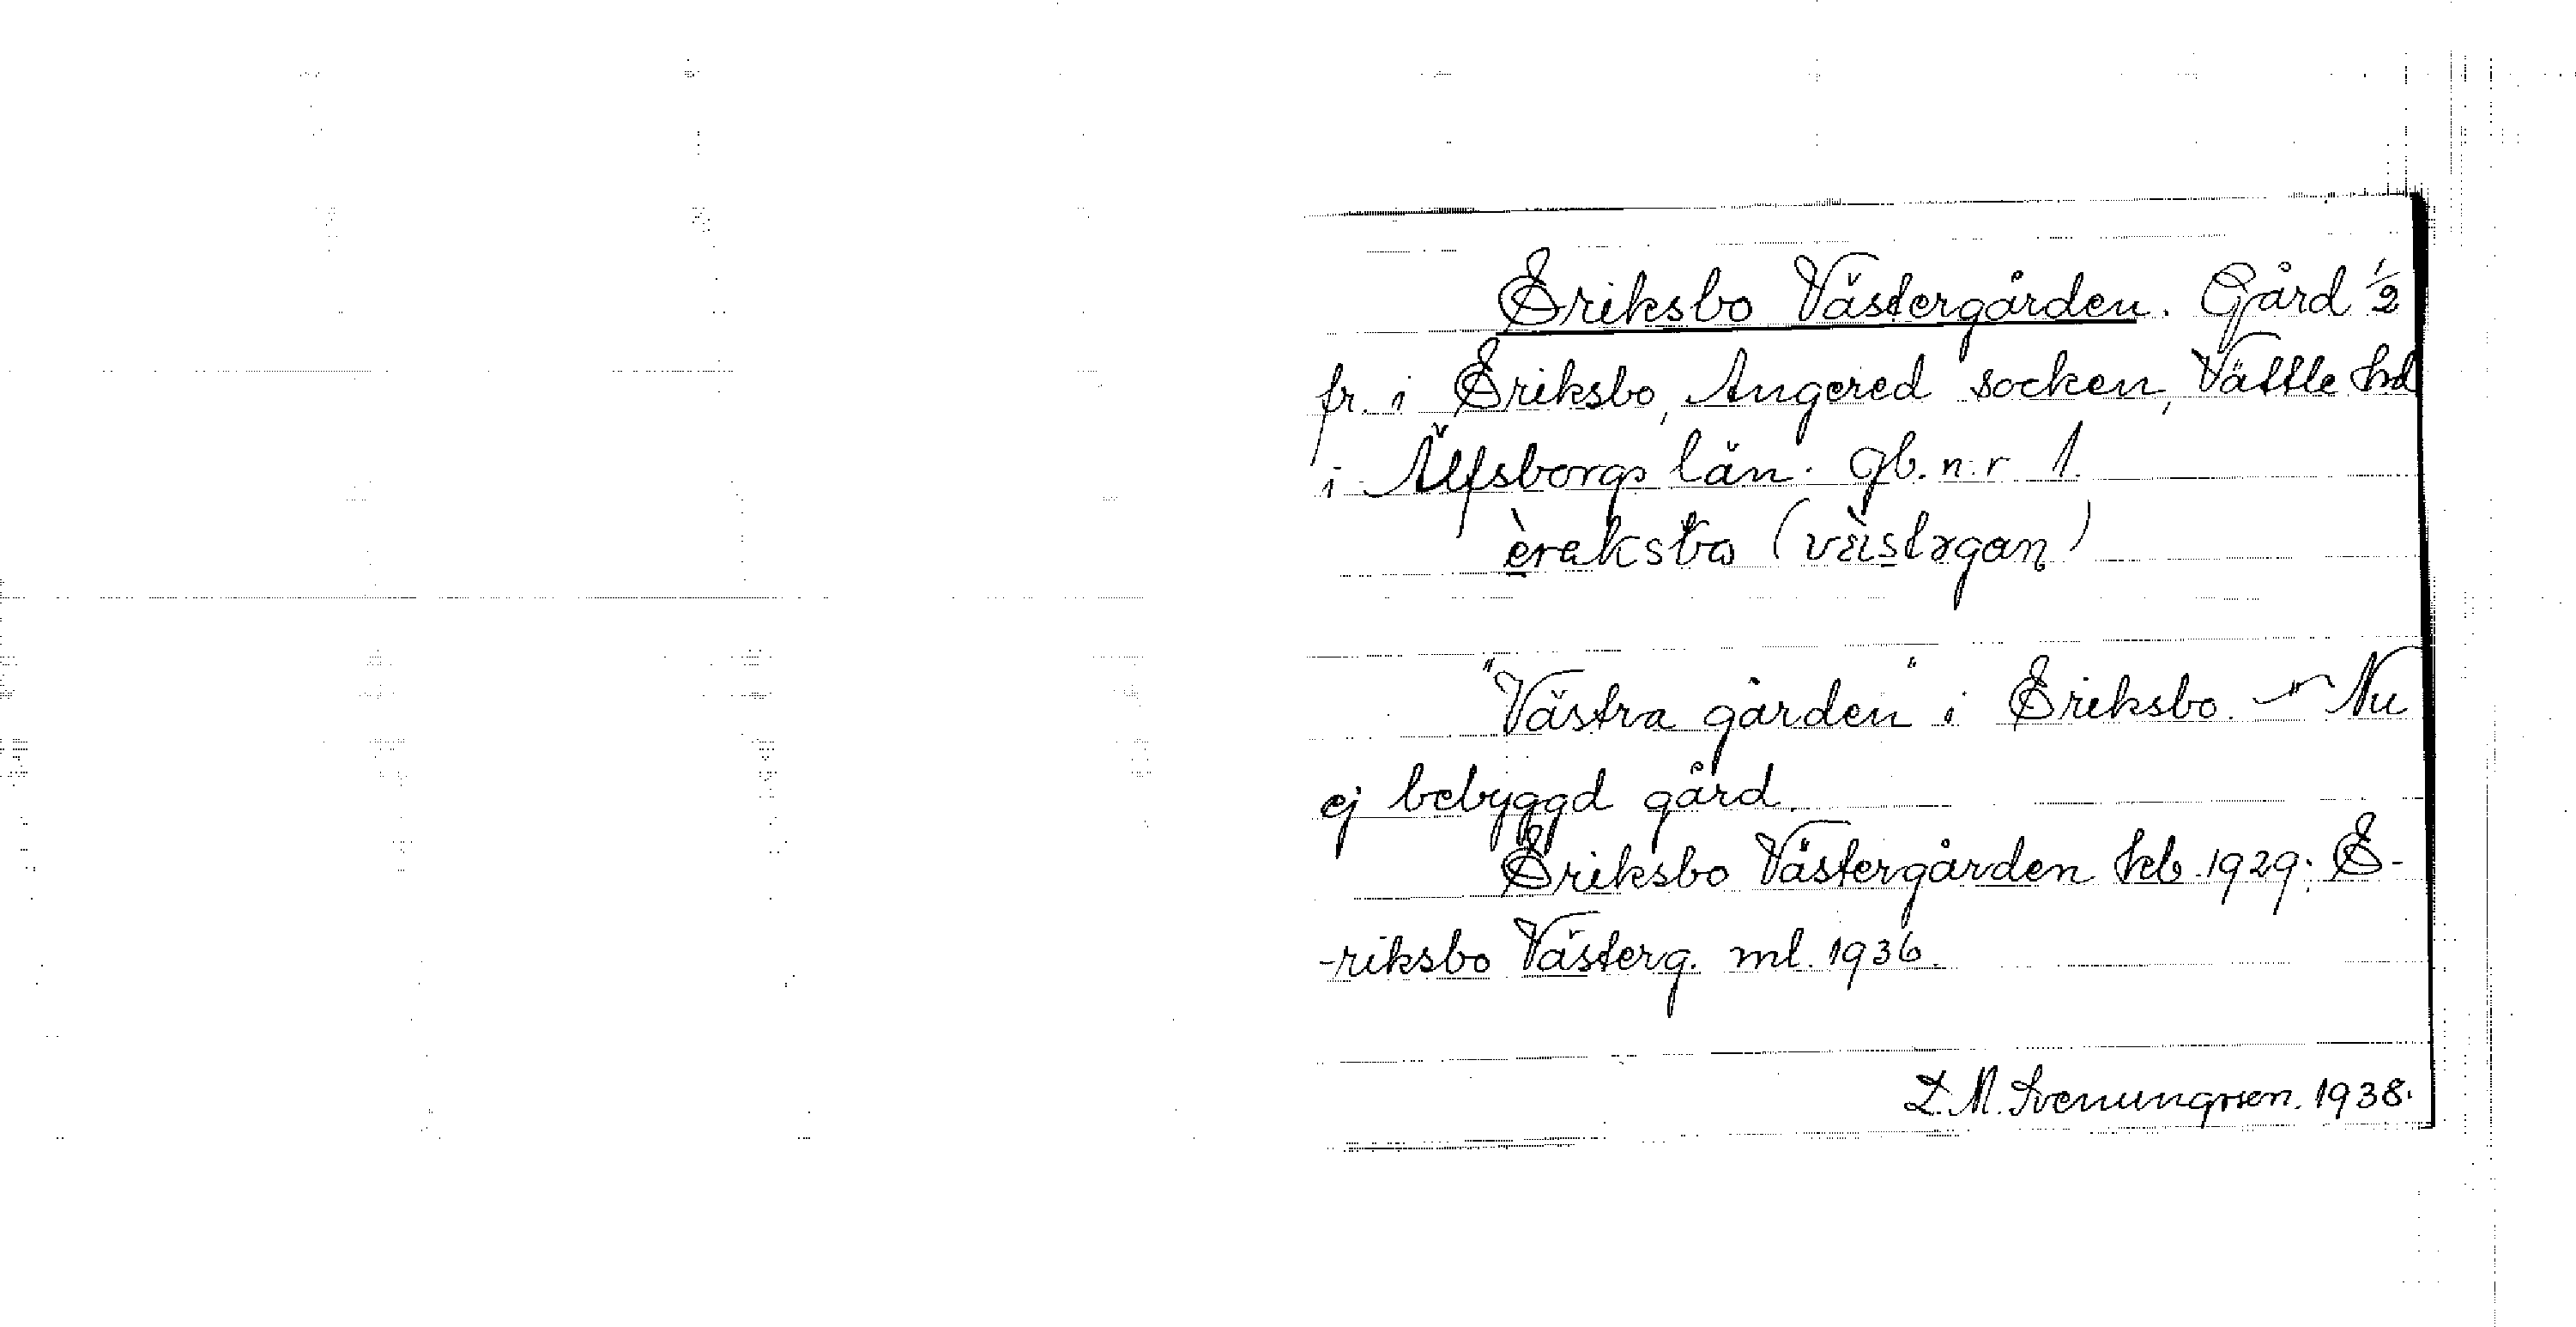 Eriksbo Västergården. Gård 1/2
fr. i Eriksbo, Angered socken, Vättle hd
i Älfsborgs län. Gb. n:r 1.
"Västra gården" i Eriksbo. — Nu
ej bebyggd gård.
Eriksbo Västergården 1929; E-
-riksbo Västerg. ml. 1936.
M. Svenungsson. 1938.